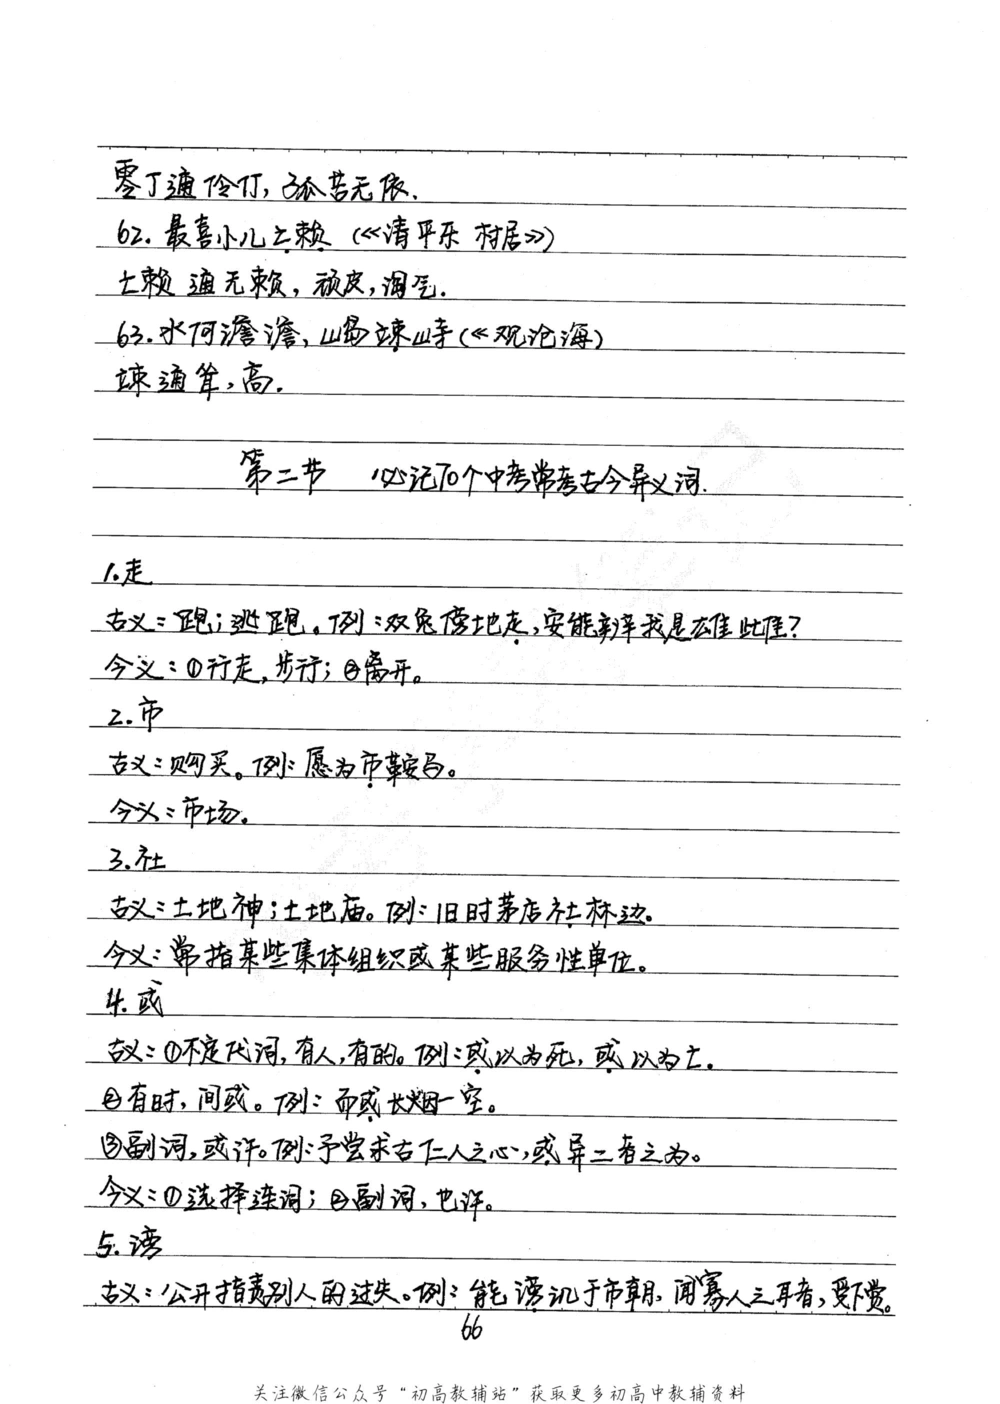 零丁通伶仃,孤苦无依.
62.最喜小儿亡赖(《清平乐 村居》)
亡赖 通无赖,顽皮,淘气.
63.水何澹澹,山岛竦峙(《观沧海)
竦通耸,高.
第二节 必记70个中考常考古今异义词.
1.走
古义:跑;逃跑。例:双兔傍地走,安能辨我是雄雌?
今义:①行走,步行;②离开。
2.市
古义:购买。例:愿为市鞍马。
今义:市场。
3.社
古义:土地神;土地庙。例:旧时茅店社林边。
今义:常指某些集体组织或某些服务性单位。
4.或
古义:①不定代词,有人,有的。例:或以为死,或以为亡.
②有时,间或。例:而或长烟一空。
③副词,或许。例:予尝求古仁人之心,或异二者之为。
今义:①选择连词;②副词,也许。
5.谤
古义:公开指责别人的过失。例:能谤讥于市朝,闻寡人之耳者,受下赏。
66
关注微信公众号“初高教辅站”获取更多初高中教辅资料